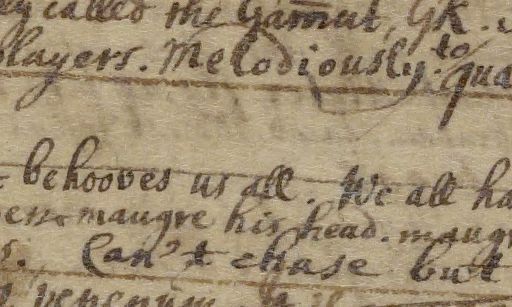 called the Gam̅ut, GK.
players. Melodiously. to
behooves us all. We all ha
maugre his head. maugr
Can't chase but
venenum